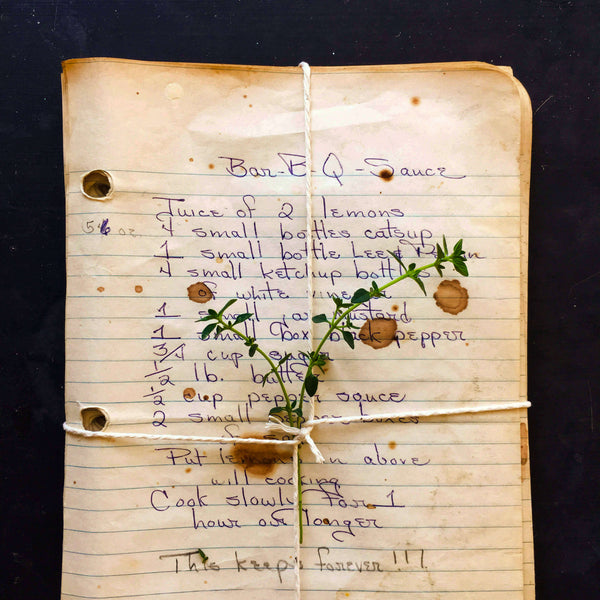 Bar-B-Q-Sauce
Juice of 2 lemons
4 small bottles catsup
1 small bottle Lee &
4 small ketchup bottles
of white
1 small jar mustard
1 small box black pepper
3/4 cup sugar
1/2 lb. butter
1/2 cup pepper sauce
2 small boxes
Put in above
will cooking
Cook slowly For 1
hour or longer
This keeps forever!!!